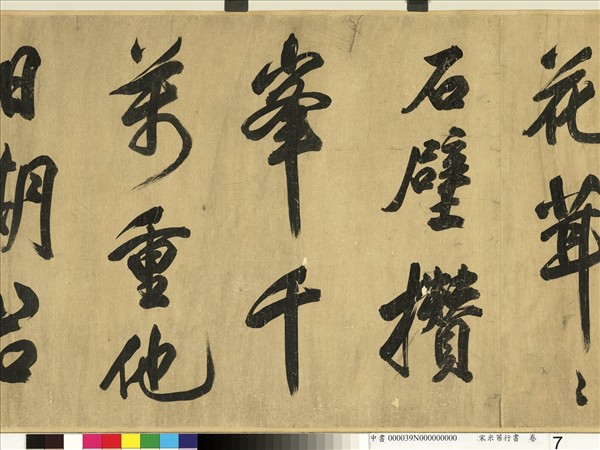 花茸〻
石壁攢
峯千
萬重他
日期君
中書 000039N000000000 宋米芾行書 卷 7